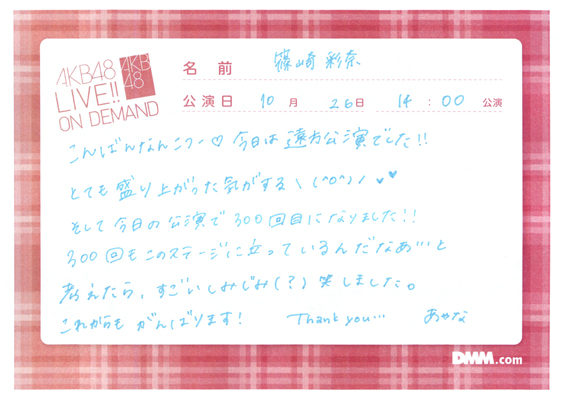 AKB48
LIVE!!
ON DEMAND
AKB
48
名前 篠崎 彩奈
公演日 10月 26日 14:00 公演
こんばんなんこつー♡ 今日は遠方公演でした!!
とても盛り上がった気がする\(^o^)/♥♥
そして今日の公演で300回目になりました!!
300回もこのステージに立っているんだなあ…と
考えたら、すごいしみじみ(?)笑しました。
これからもがんばります! Thank you… あやな
DMM.com